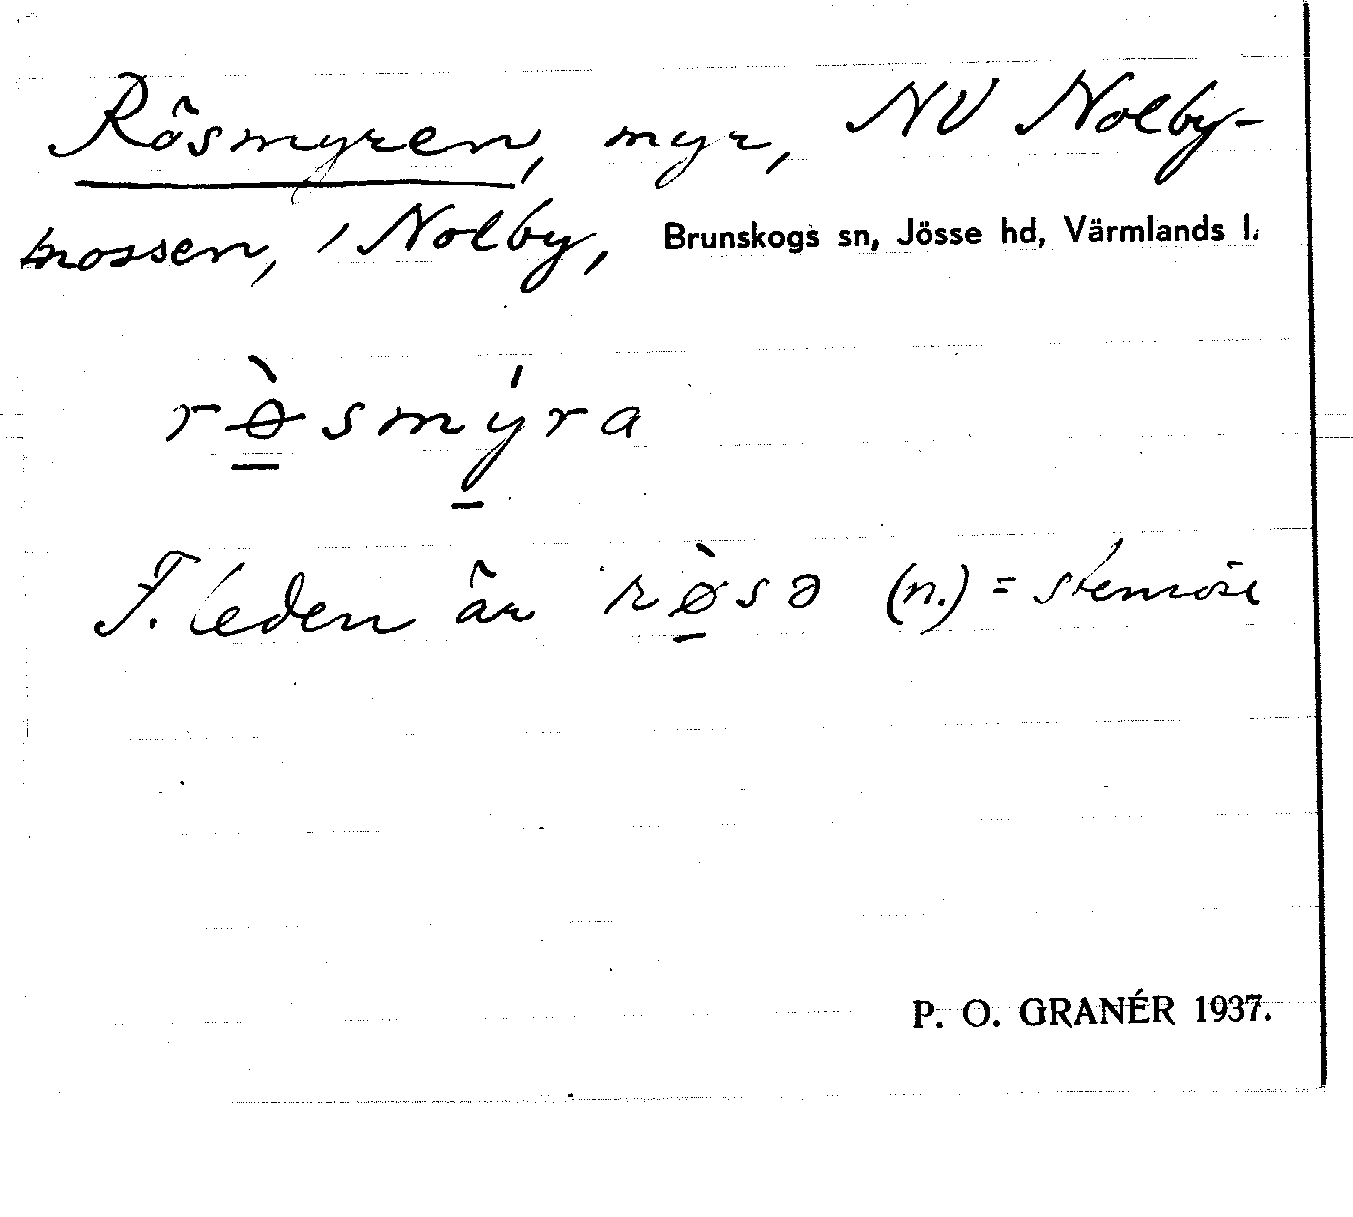 Rösmyren, myr, NV Nolby-
mossen, i Nolby, Brunskogs sn, Jösse hd, Värmlands l.
rø̀smýra
F. leden är rø̀sə (n.) = stenröse
P. O. GRANÉR 1937.